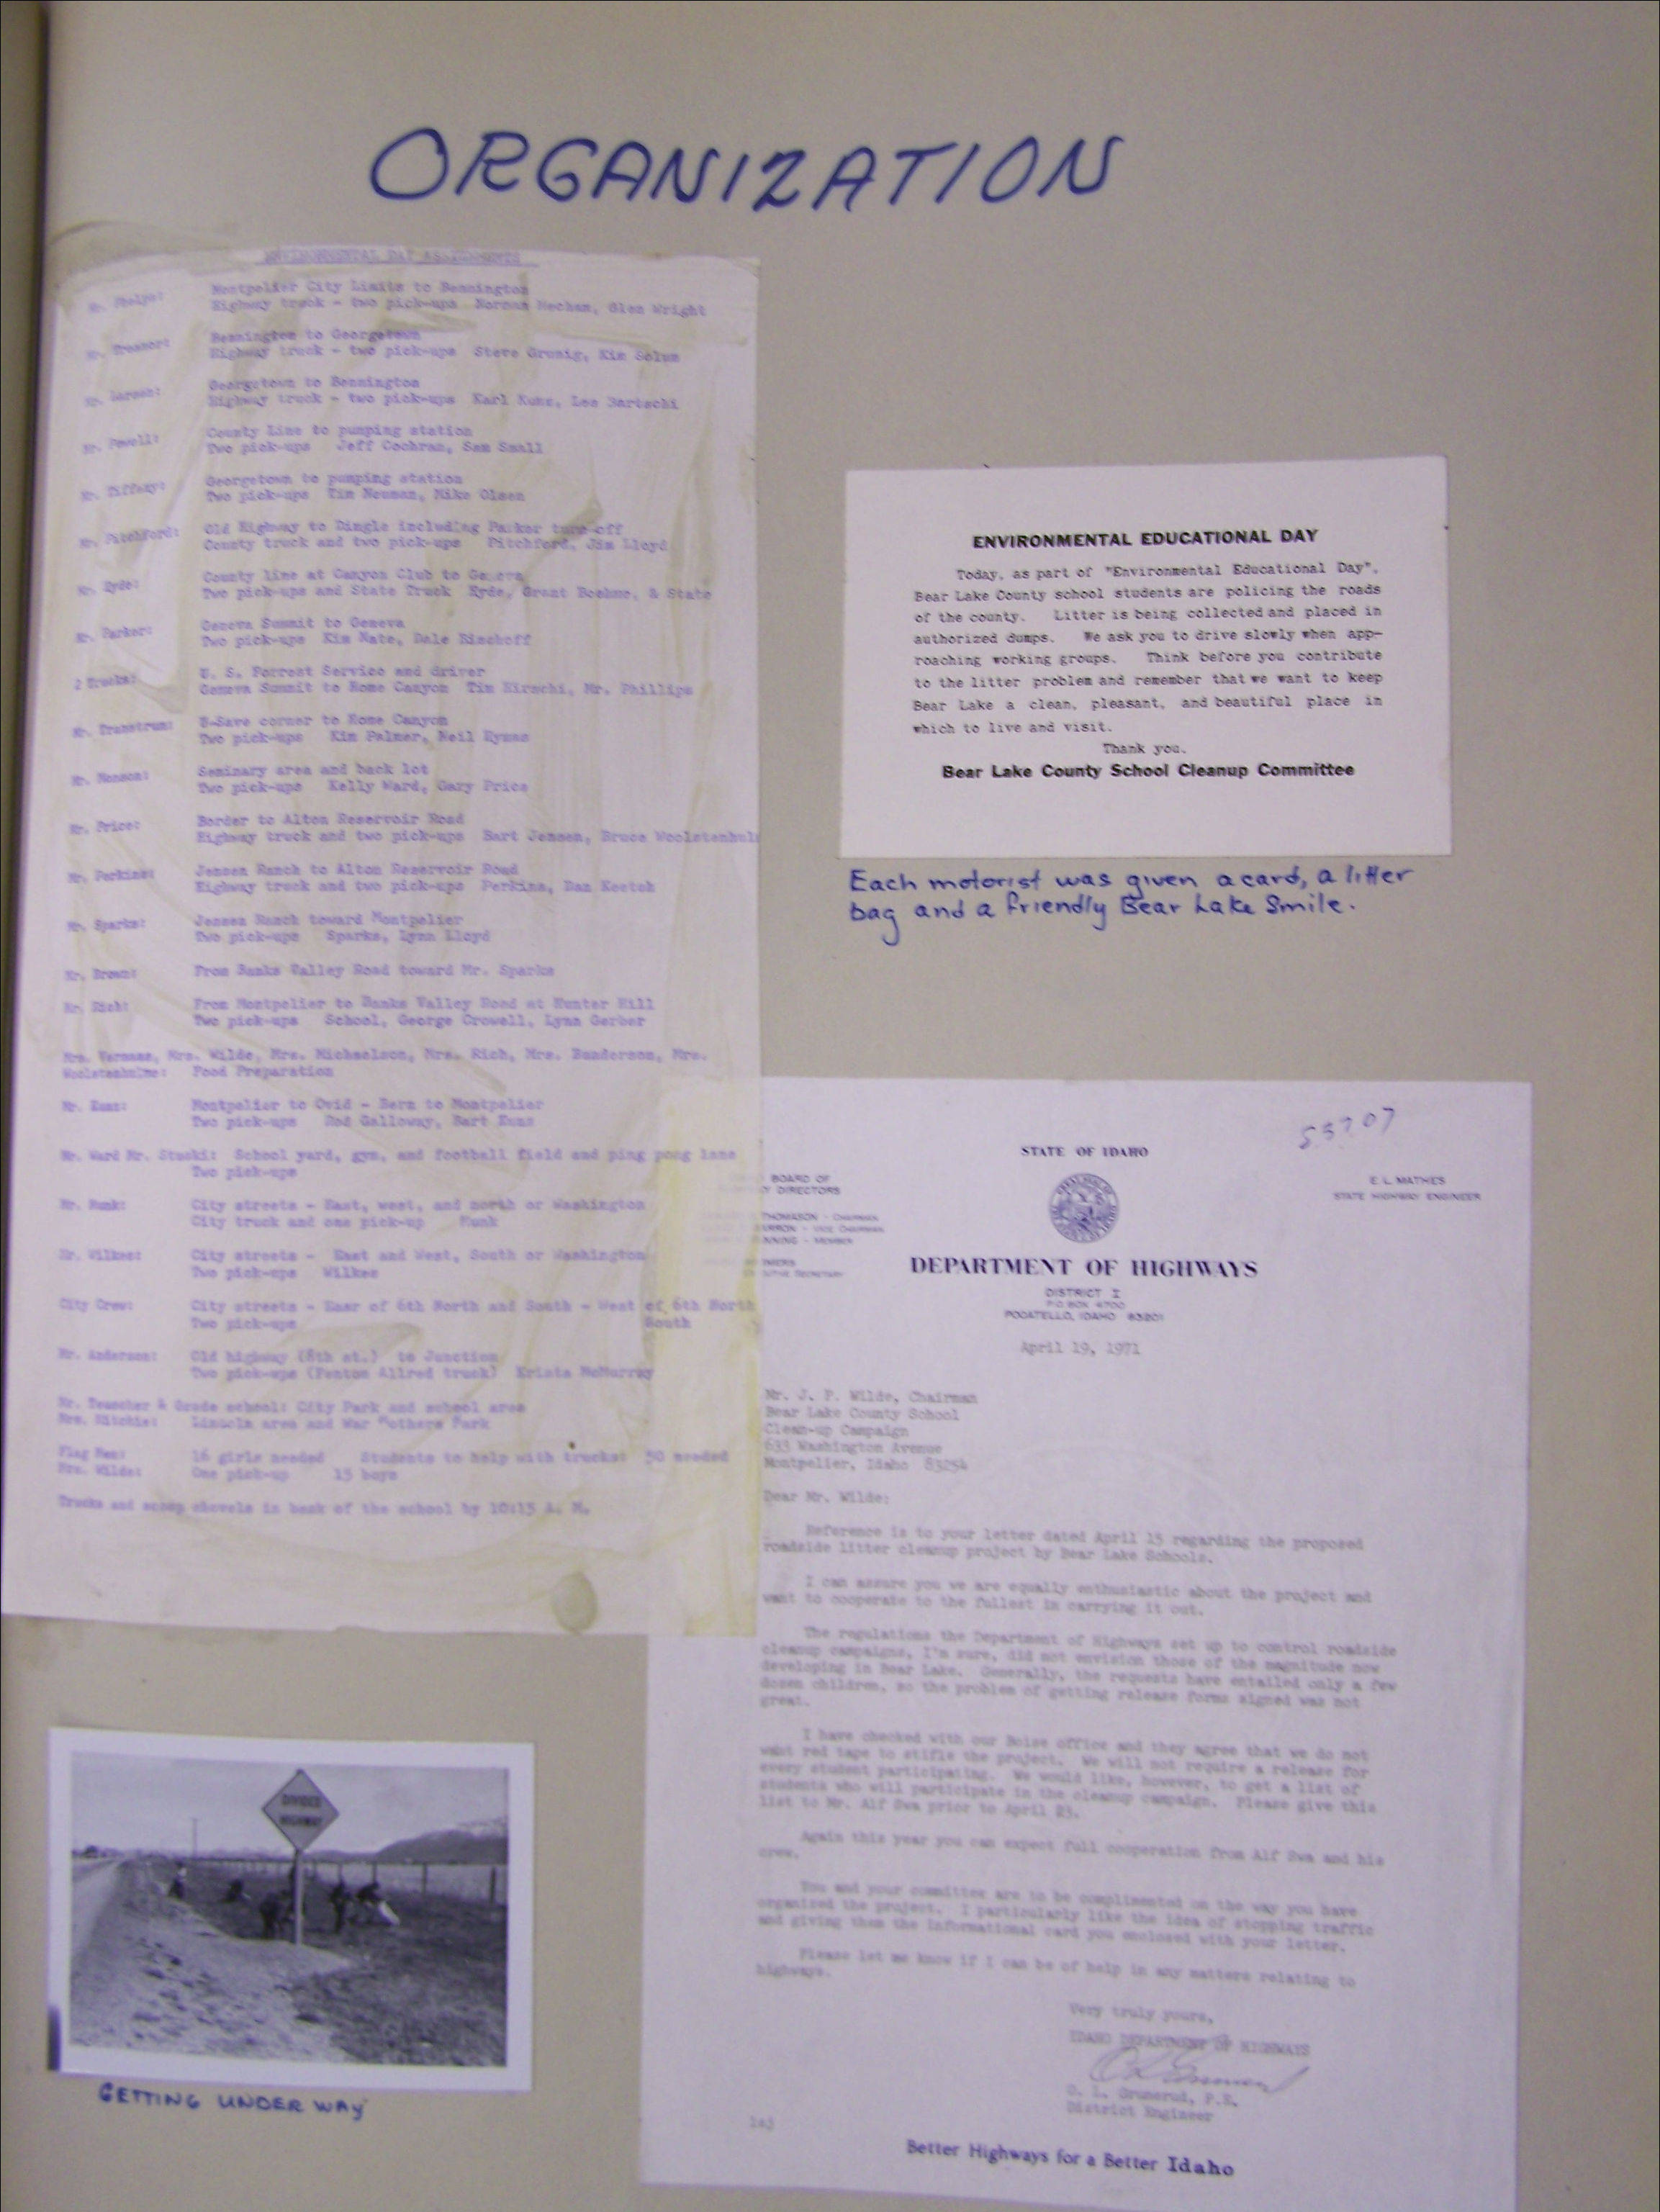 ORGANIZATION
ENVIRONMENTAL DAY ASSIGNMENTS
Mr. Phelps: Montpelier City Limits to Bennington
Highway truck - two pick-ups Norman Mecham, Glen Wright
Bennington to Georgetown
Highway truck - two pick-ups Steve Grunig, Kim Solum
Mr. Larsen: Georgetown to Bennington
Highway truck - two pick-ups Karl Kunz, Lee Bartschi
Mr. Powell: County Line to pumping station
Two pick-ups Jeff Cochran, Sam Small
Mr. Tiffany: Georgetown to pumping station
Two pick-ups Tim Neuman, Mike Olsen
Mr. Pitchford: Old Highway to Dingle including Parker turn-off
County truck and two pick-ups Pitchford, Jim Lloyd
Mr. Hyde: County line at Canyon Club to Geneva
Two pick-ups and State Truck Hyde, Grant Boehme, & State
Mr. Parker: Geneva Summit to Geneva
Two pick-ups Kim Nate, Dale Bischoff
2 Trucks: U. S. Forrest Service and driver
Geneva Summit to Home Canyon Tim Hirschi, Mr. Phillips
Mr. Transtrum: U-Save corner to Home Canyon
Two pick-ups Kim Palmer, Neil Hymas
Mr. Monson: Seminary area and back lot
Two pick-ups Kelly Ward, Gary Price
Mr. Price: Border to Alton Reservoir Road
Highway truck and two pick-ups Bart Jensen, Bruce Woolstenhul
Mr. Perkins: Jensen Ranch to Alton Reservoir Road
Highway truck and two pick-ups Perkins, Dan Keetch
Mr. Sparks: Jensen Ranch toward Montpelier
Two pick-ups Sparks, Lynn Lloyd
Mr. Brown: From Banks Valley Road toward Mr. Sparks
Mr. Rich: From Montpelier to Banks Valley Road at Hunter Hill
Two pick-ups School, George Crowell, Lynn Gerber
Mrs. Wilde, Mrs. Michaelson, Mrs. Rich, Mrs. Banderson, Mrs.
Woolstenhulme: Food Preparation
Mr. Kunz: Montpelier to Ovid - Bern to Montpelier
Two pick-ups Rod Galloway, Bart Kunz
Mr. Ward Mr. Stucki: School yard, gym, and football field and ping pong lane
Two pick-ups
Mr. Munk: City streets - East, west, and north or Washington
City truck and one pick-up Munk
Mr. Wilkes: City streets - East and West, South or Washington
Two pick-ups Wilkes
City Crew: City streets - Easr of 6th North and South - West of 6th North
Two pick-ups South
Mr. Anderson: Old highway (8th st.) to Junction
Two pick-ups (Fenton Allred truck) Krista McMurray
Mr. Teuscher & Grade school: City Park and school area
Mrs. Ritchie: Lincoln area and War Mothers Park
Flag Men: 16 girls needed Students to help with trucks: 50 needed
Mrs. Wilde: One pick-up 15 boys
Trucks and scoop shovels in back of the school by 10:15 A. M.
ENVIRONMENTAL EDUCATIONAL DAY
Today, as part of "Environmental Educational Day",
Bear Lake County school students are policing the roads
of the county. Litter is being collected and placed in
authorized dumps. We ask you to drive slowly when app-
roaching working groups. Think before you contribute
to the litter problem and remember that we want to keep
Bear Lake a clean, pleasant, and beautiful place in
which to live and visit.
Thank you.
Bear Lake County School Cleanup Committee
Each motorist was given a card, a litter
bag and a friendly Bear Lake Smile.
STATE OF IDAHO
BOARD OF
DIRECTORS
THOMASON - CHAIRMAN
VICE CHAIRMAN
MEMBER
SECRETARY
E. L. MATHES
STATE HIGHWAY ENGINEER
DEPARTMENT OF HIGHWAYS
DISTRICT I
P.O. BOX 4700
POCATELLO, IDAHO 83201
April 19, 1971
Mr. J. P. Wilde, Chairman
Bear Lake County School
Clean-up Campaign
633 Washington Avenue
Montpelier, Idaho 83254
Dear Mr. Wilde:
Reference is to your letter dated April 15 regarding the proposed
roadside litter cleanup project by Bear Lake Schools.
I can assure you we are equally enthusiastic about the project and
want to cooperate to the fullest in carrying it out.
The regulations the Department of Highways set up to control roadside
cleanup campaigns, I'm sure, did not envision those of the magnitude now
developing in Bear Lake. Generally, the requests have entailed only a few
dozen children, so the problem of getting release forms signed was not
great.
I have checked with our Boise office and they agree that we do not
want red tape to stifle the project. We will not require a release for
every student participating. We would like, however, to get a list of
students who will participate in the cleanup campaign. Please give this
list to Mr. Alf Swa prior to April 23.
Again this year you can expect full cooperation from Alf Swa and his
crew.
You and your committee are to be complimented on the way you have
organized the project. I particularly like the idea of stopping traffic
and giving them the informational card you enclosed with your letter.
Please let me know if I can be of help in any matters relating to
highways.
Very truly yours,
IDAHO DEPARTMENT OF HIGHWAYS
District Engineer
Better Highways for a Better Idaho
DIVIDED
HIGHWAY
GETTING UNDER WAY